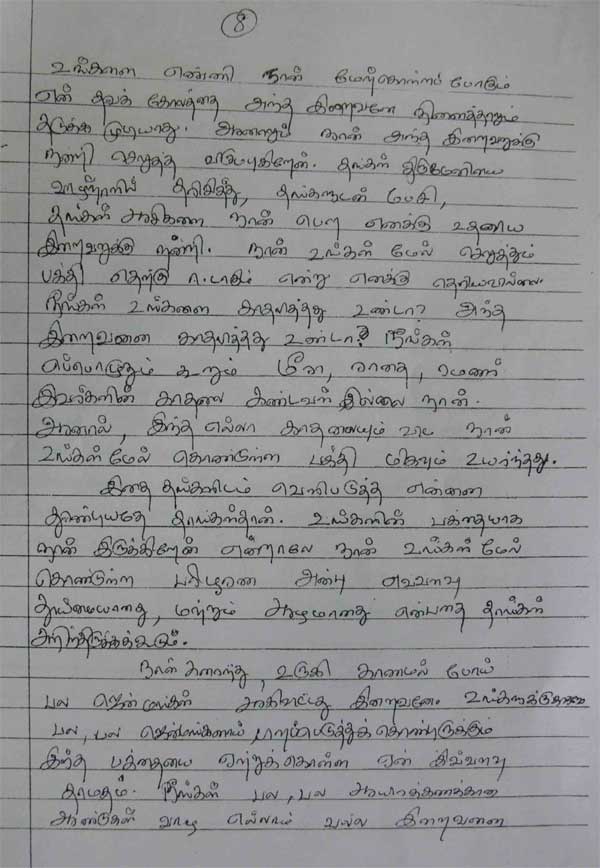 8
உங்களை எண்ணி நான் மேற்கொள்ளப் போகும்
என் தவக் கோலத்தை அந்த இறைவனே நினைத்தாலும்
தடுக்க முடியாது. ஆனாலும் நான் அந்த இறைவனுக்கு
நன்றி செலுத்த விரும்புகிறேன். தங்கள் திருமேனியை
வாழ்நாளில் தரிசித்து, தங்களுடன் பேசி,
தங்கள் ஆசிகளை நான் பெற எனக்கு உதவிய
இறைவனுக்கு நன்றி. நான் உங்கள் மேல் செலுத்தும்
பக்தி எதற்கு ஈடாகும் என்று எனக்கு தெரியவில்லை.
நீங்கள் உங்களை காதலித்தது உண்டா? அந்த
இறைவனை காதலித்தது உண்டா? நீங்கள்
எப்பொழுதும் கூறும் மீரா, ராதை, ரமணர்
இவர்களின் காதலை கண்டவள் இல்லை நான்.
ஆனால், இந்த எல்லா காதலையும் விட நான்
உங்கள் மேல் கொண்டுள்ள பக்தி மிகவும் உயர்ந்தது.
இதை தங்களிடம் வெளிபடுத்த என்னை
தூண்டியதே தாங்கள்தான். உங்களின் பக்தையாக
நான் இருக்கிறேன் என்றாலே நான் உங்கள் மேல்
கொண்டுள்ள அன்பு எவ்வளவு
தூய்மையானது, மற்றும் ஆழமானது என்பதை தாங்கள்
அறிந்திருக்கக்கூடும்.
நான் கரைந்து, உருகி காணாமல் போய்
பல ஜென்மங்கள் ஆகிவிட்டது இறைவனே. உங்களுக்காக
பல, பல ஜென்மங்களாய் கொண்டிருக்கும்
இந்த பக்தையை ஏற்றுக்கொள்ள ஏன் இவ்வளவு
தாமதம். நீங்கள் பல, பல ஆயிரக்கணக்கான
ஆண்டுகள் வாழ எல்லாம் வல்ல இறைவனை